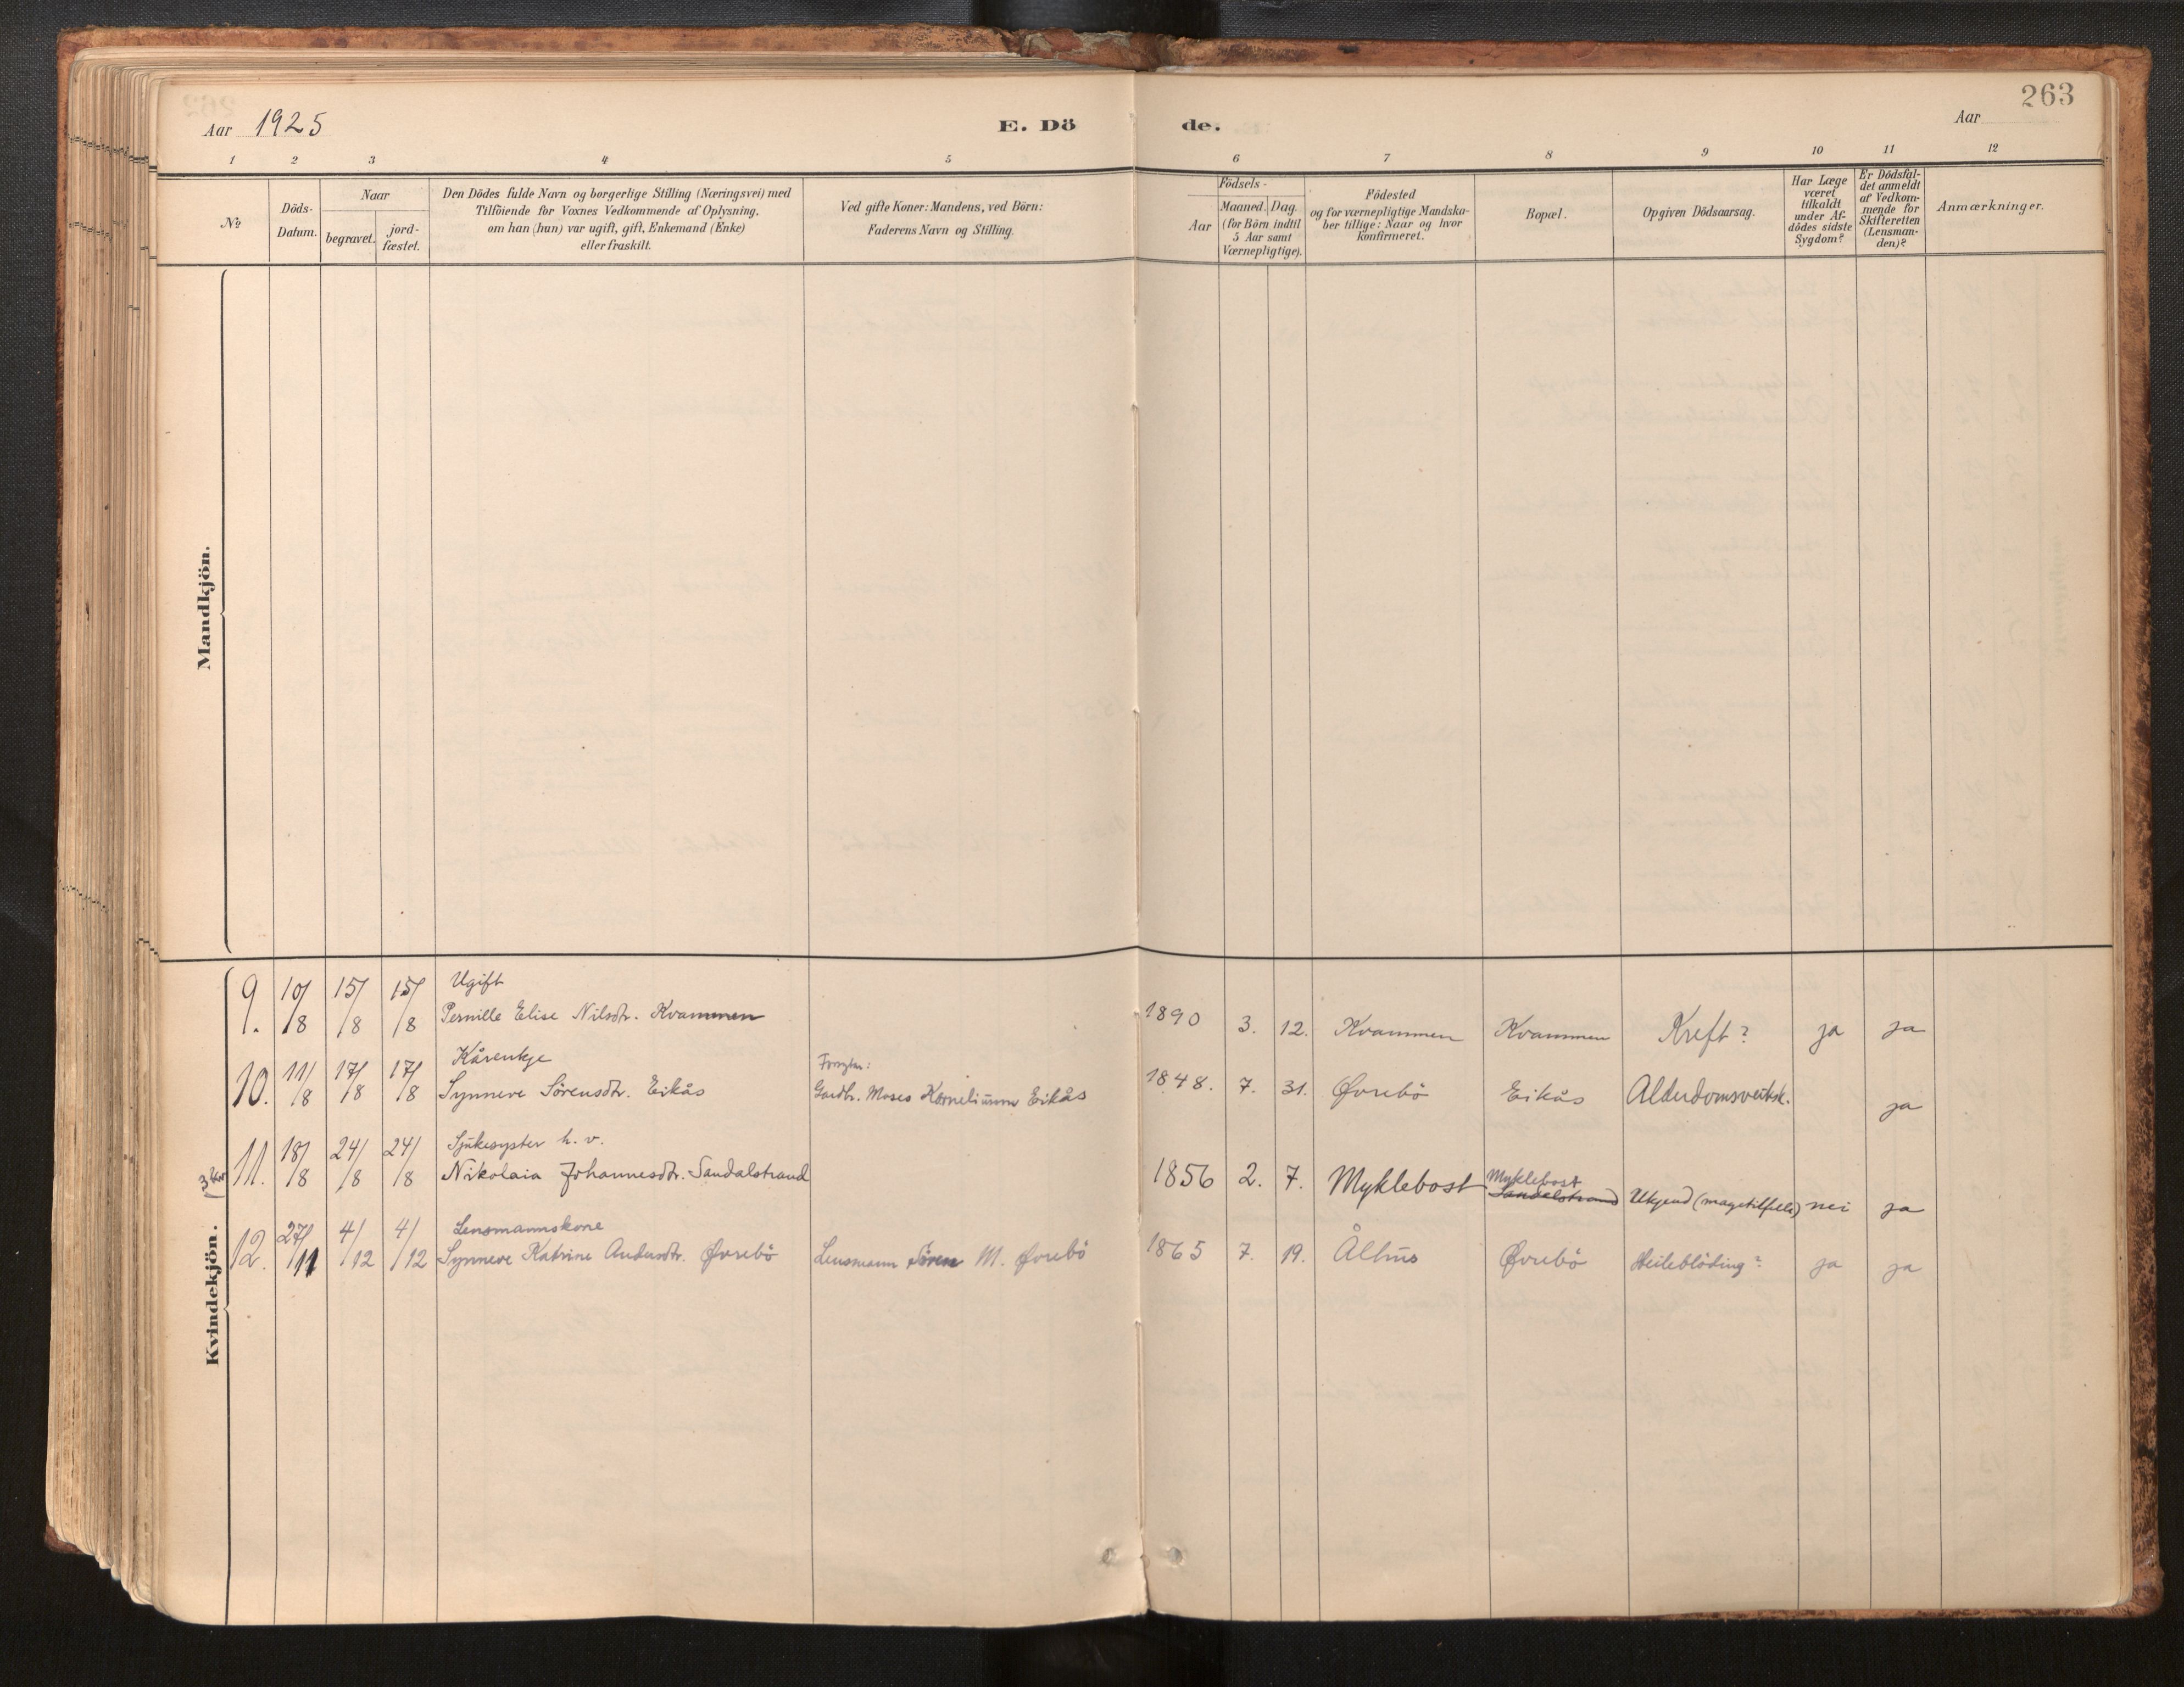 263
Aar 1925 E. Dö de. Aar
1 2 3 4 5 6 7 8 9 10 11 12
No
Döds-
Datum.
Naar
begravet.
jord-
fæstet.
Den Dödes fulde Navn og borgerlige Stilling (Næringsvei) med
Tilföiende for Voxnes Vedkommende af Oplysning,
om han (hun) var ugift, gift, Enkemand (Enke)
eller fraskilt.
Ved gifte Koner: Mandens, ved Börn:
Faderens Navn og Stilling.
Födsels-
Aar
Maaned. Dag.
(for Börn indtil
5 Aar samt
Værnepligtige).
Födested
og for værnepligtige Mandska-
ber tillige: Naar og hvor
konfirmeret.
Bopæl.
Opgiven Dödsaarsag.
Har Læge
været
tilkaldt
under Af-
dödes sidste
Sygdom?
Er Dödsfal-
det anmeldt
af Vedkom-
mende for
Skifteretten
(Lensman-
den)?
Anmærkninger.
Mandkjön.
Kvindekjön.
9. 10/8 15/8 15/8 Ugift
Pernille Elise Nilsdtr. Kvammen 1890 3. 12. Kvammen Kvammen Kreft? ja ja
10. 11/8 17/8 17/8 Kårenkje
Synneve Sörensdtr. Eikås Gardbr. Moses Korneliussen Eikås 1848. 7. 31. Øvrebö Eikås Alderdomsveiksk. ja
11. 18/8 24/8 24/8 Sjukesyster h. v.
Nikolaia Johannesdtr. Sandalstrand 1856 2. 7. Myklebost Myklebost
Sandalstrand Ukjend (magetilfelle) nei ja
12. 27/11 4/12 4/12 Lensmannskone
Synneve Katrine Andersdtr. Øvrebö Lensmann Sören M. Øvrebö 1865 7. 19. Ålhus Øvrebö Heileblöding? ja ja